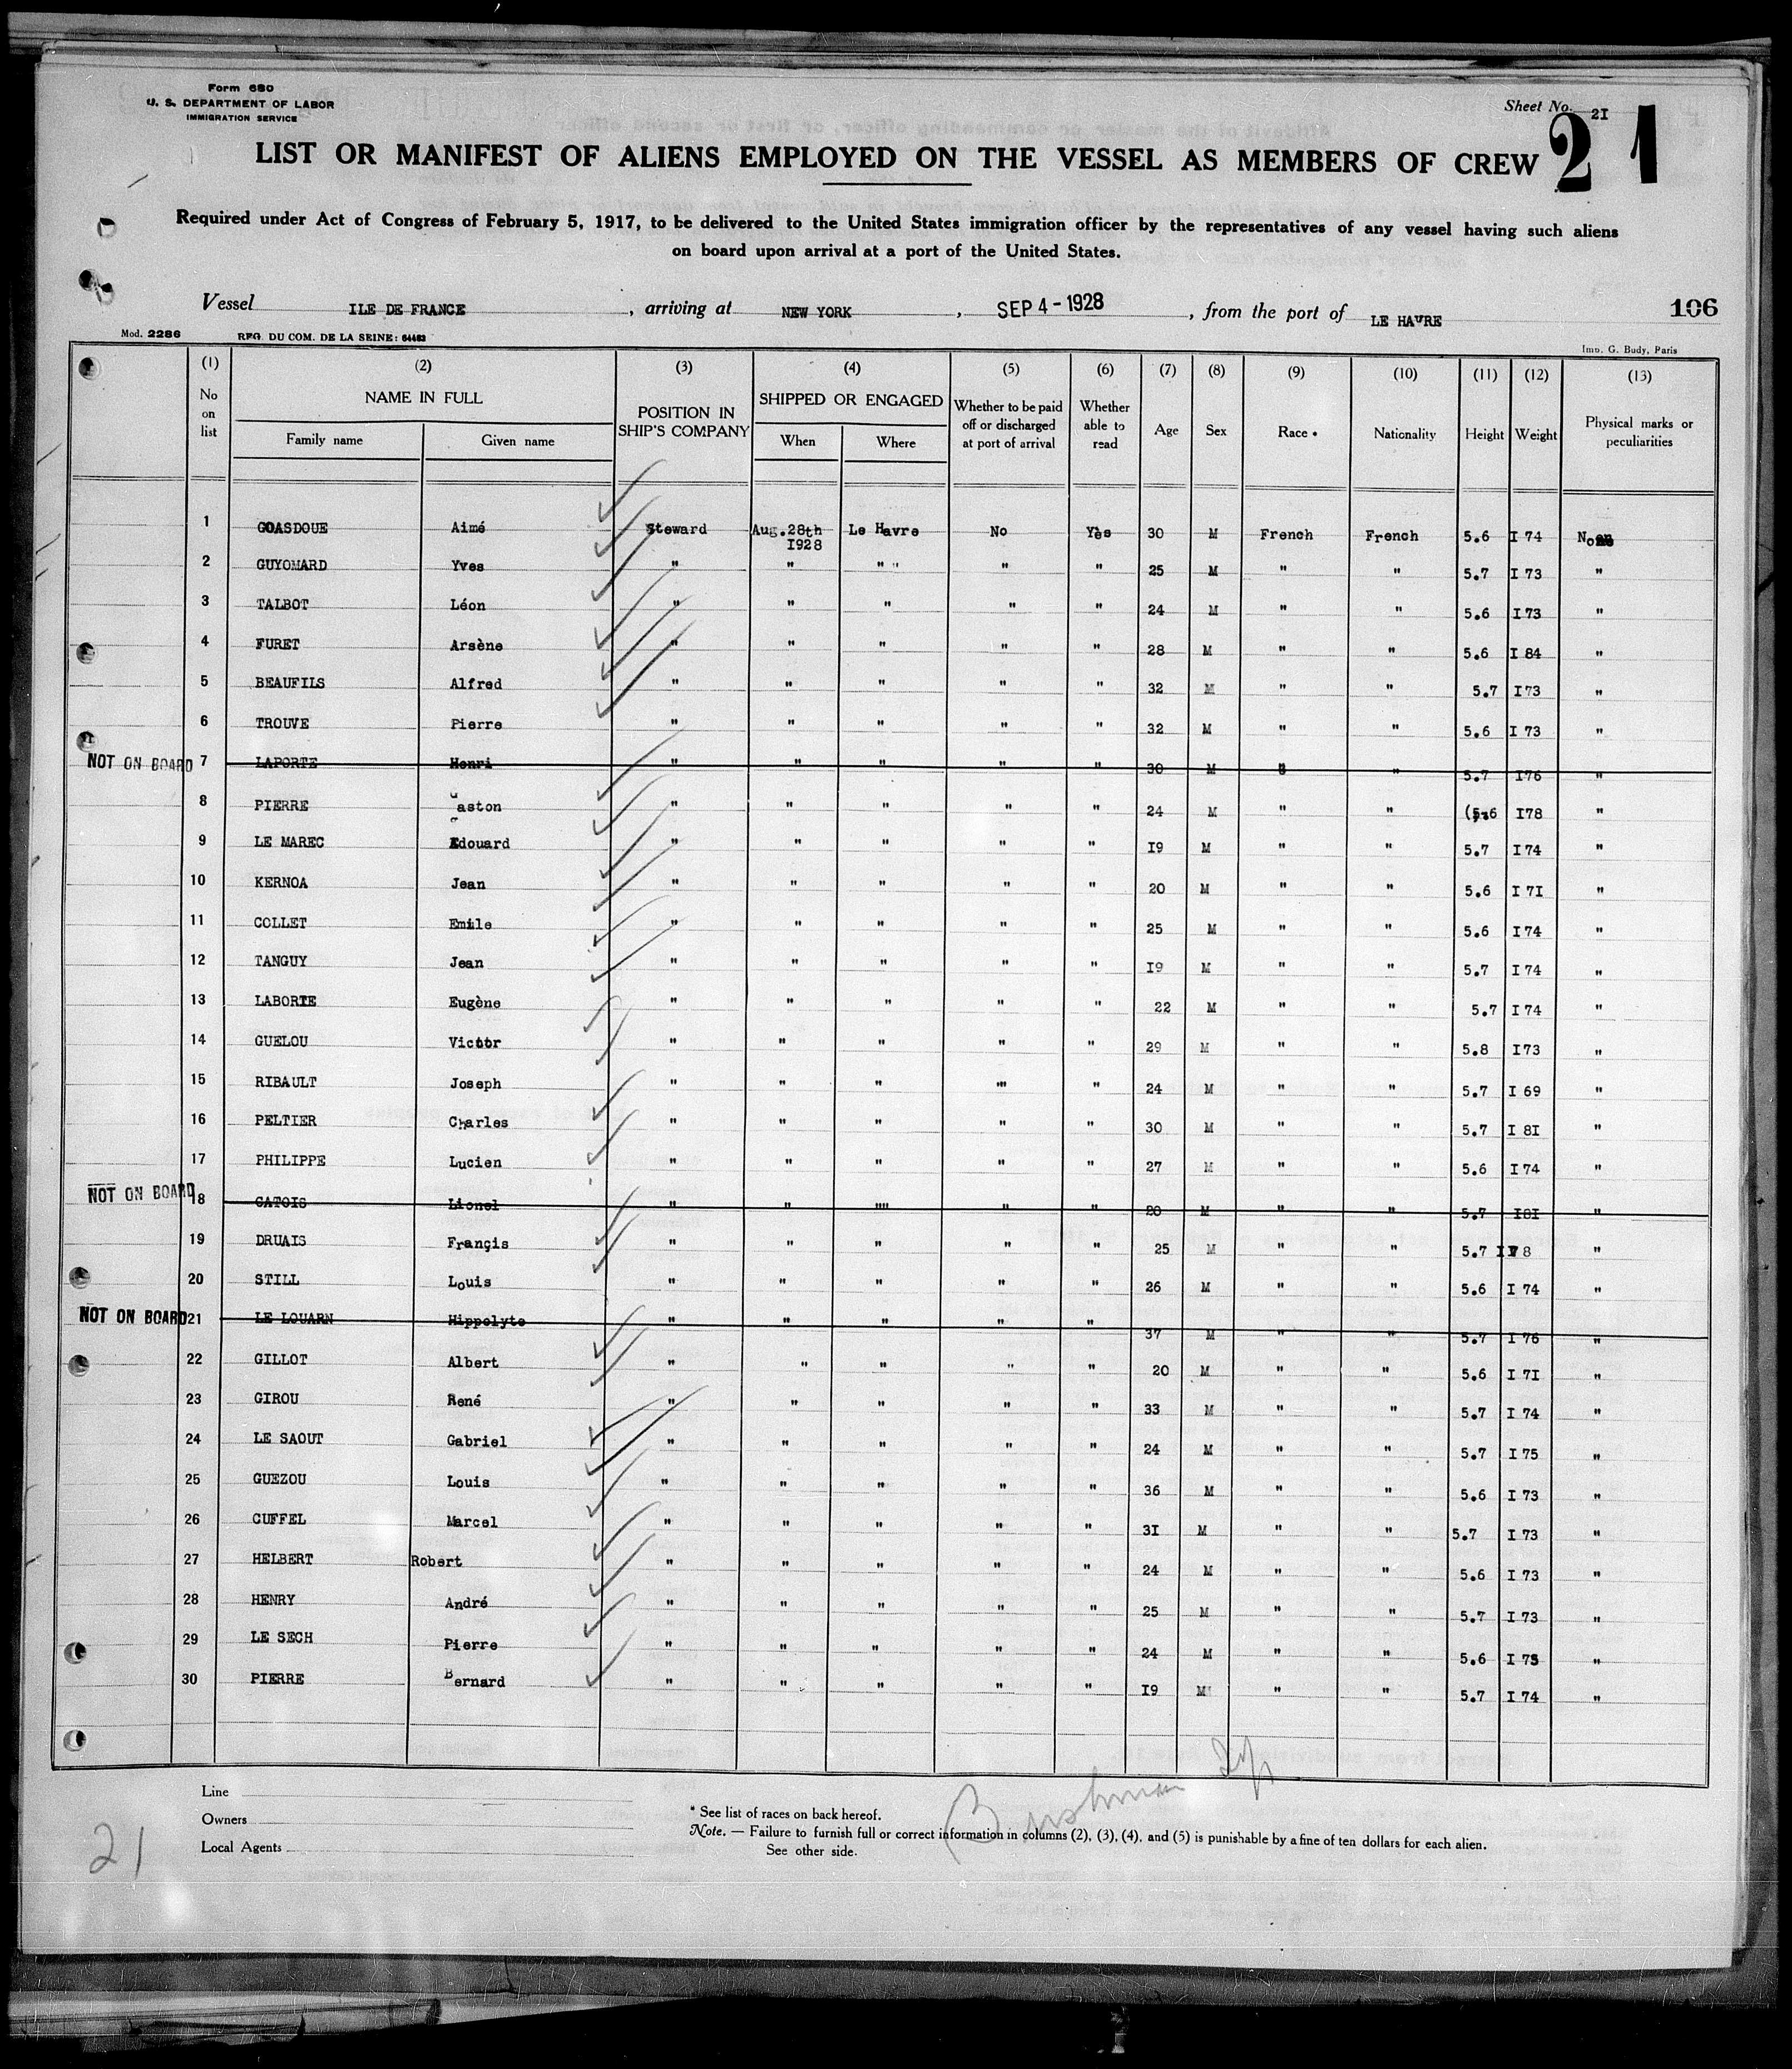 Form 680
U. S. DEPARTMENT OF LABOR
IMMIGRATION SERVICE
Sheet No. 2I
21
LIST OR MANIFEST OF ALIENS EMPLOYED ON THE VESSEL AS MEMBERS OF CREW
Required under Act of Congress of February 5, 1917, to be delivered to the United States immigration officer by the representatives of any vessel having such aliens
on board upon arrival at a port of the United States.
Vessel ILE DE FRANCE, arriving at NEW YORK, SEP 4 - 1928, from the port of LE HAVRE 106
Mod. 2286 REG. DU COM. DE LA SEINE: 64483 Imp. G. Budy, Paris
(1) (2) (3) (4) (5) (6) (7) (8) (9) (10) (11) (12) (13)
No on list NAME IN FULL Family name Given name POSITION IN SHIP'S COMPANY SHIPPED OR ENGAGED When Where Whether to be paid off or discharged at port of arrival Whether able to read Age Sex Race * Nationality Height Weight Physical marks or peculiarities
1 GOASDOUE Aimé Steward Aug.28th I928 Le Havre No Yes 30 M French French 5.6 I 74 None
2 GUYOMARD Yves " " " " " " 25 M " " 5.7 I 73 "
3 TALBOT Léon " " " " " 24 M " " 5.6 I73 "
4 FURET Arsène " " " " " 28 M " " 5.6 I 84 "
5 BEAUFILS Alfred " " " " " 32 M " " 5.7 I73 "
6 TROUVE Pierre " " " " " 32 M " " 5.6 I 73 "
NOT ON BOARD 7 LAPORTE Henri " " " " " 30 M " " 5.7 I76 "
8 PIERRE Gaston " " " " " 24 M " " 5.6 I78 "
9 LE MAREC Edouard " " " " " I9 M " " 5.7 I74 "
10 KERNOA Jean " " " " " 20 M " " 5.6 I 7I "
11 COLLET Emile " " " " " 25 M " " 5.6 I74 "
12 TANGUY Jean " " " " " I9 M " " 5.7 I74 "
13 LABORTE Eugène " " " " " 22 M " " 5.7 I 74 "
14 GUELOU Victor " " " " " 29 M " " 5.8 I73 "
15 RIBAULT Joseph " " " " " 24 M " " 5.7 I 69 "
16 PELTIER Charles " " " " " 30 M " " 5.7 I 8I "
17 PHILIPPE Lucien " " " " " 27 M " " 5.6 I74 "
NOT ON BOARD 18 CATOIS Lionel " " "" " " 20 M " " 5.7 I8I "
19 DRUAIS Françis " " " " " 25 M " " 5.7 I 78 "
20 STILL Louis " " " " " 26 M " " 5.6 I 74 "
NOT ON BOARD 21 LE LOUARN Hippolyte " " " " " 37 M " " 5.7 I 76 "
22 GILLOT Albert " " " " " 20 M " " 5.6 I 7I "
23 GIROU René " " " " " 33 M " " 5.7 I 74 "
24 LE SAOUT Gabriel " " " " " 24 M " " 5.7 I 75 "
25 GUEZOU Louis " " " " " 36 M " " 5.6 I 73 "
26 CUFFEL Marcel " " " " " 3I M " " 5.7 I 73 "
27 HELBERT Robert " " " " " 24 M " " 5.6 I 73 "
28 HENRY André " " " " " 25 M " " 5.7 I 73 "
29 LE SECH Pierre " " " " " 24 M " " 5.6 I 75 "
30 PIERRE Bernard " " " " " I9 M " " 5.7 I 74 "
Line
Owners
Local Agents
* See list of races on back hereof.
Note. — Failure to furnish full or correct information in columns (2), (3), (4), and (5) is punishable by a fine of ten dollars for each alien.
See other side.
21